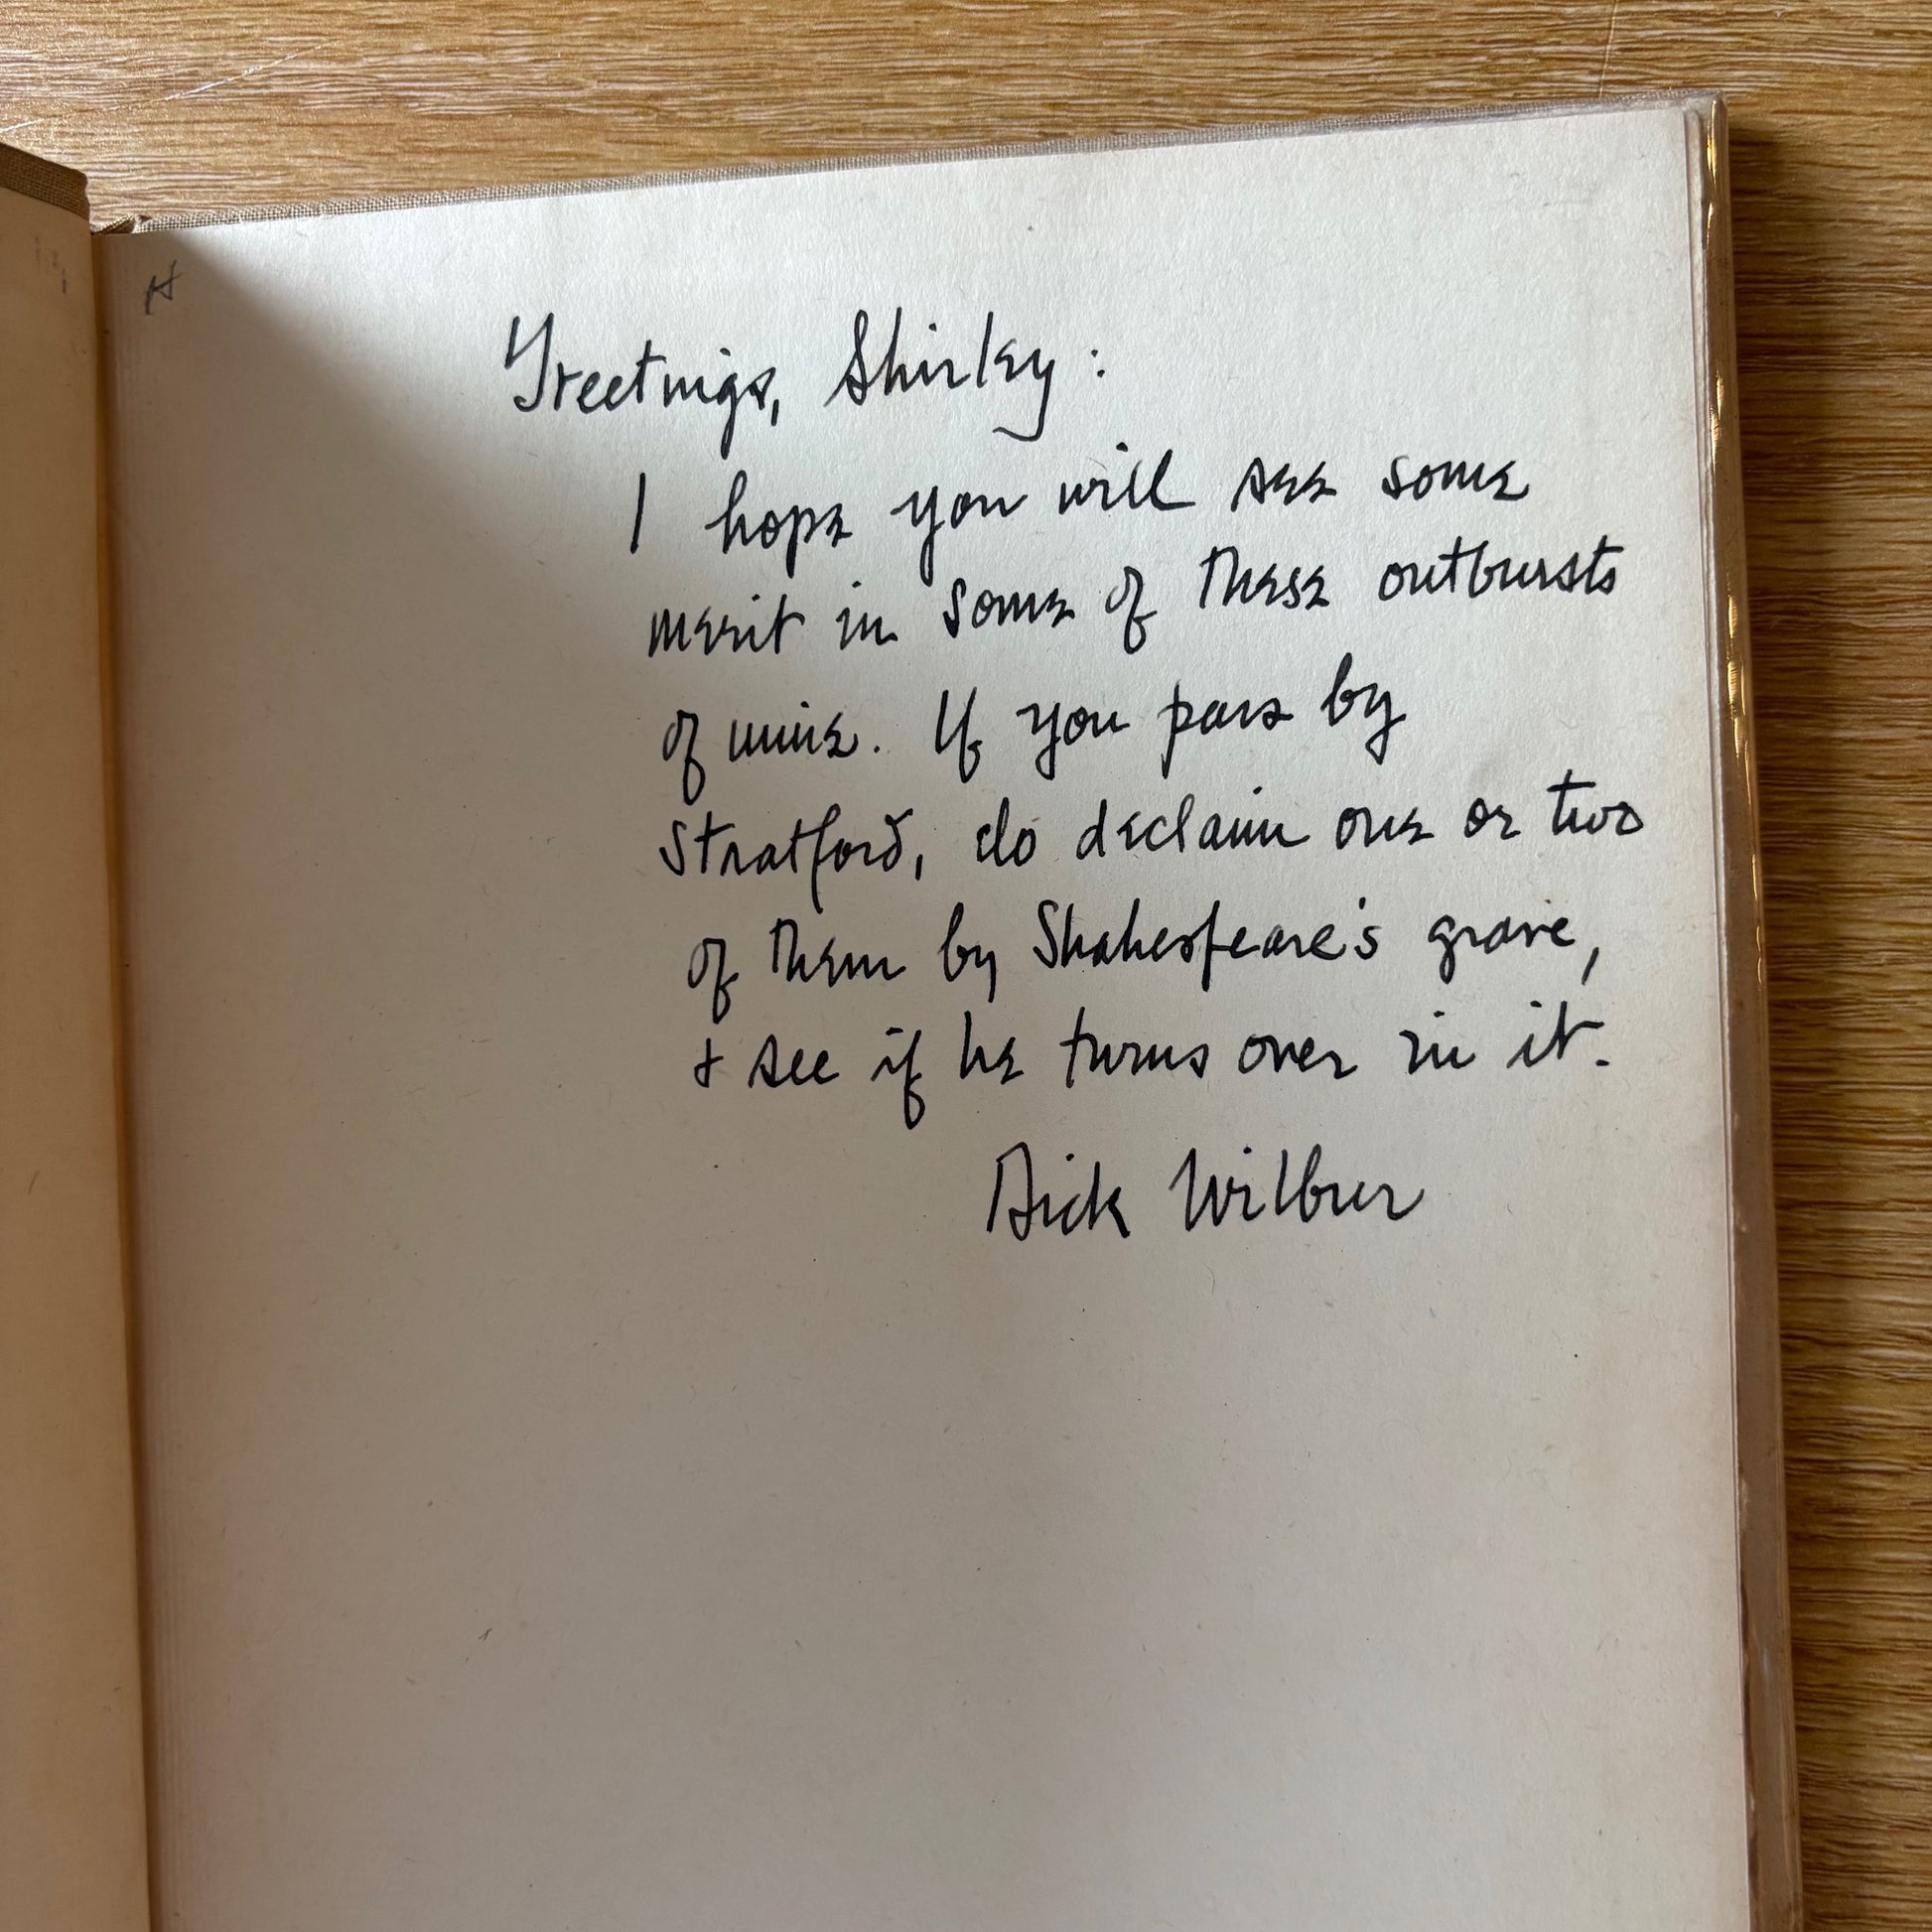 Greetings, Shirley:
I hope you will see some
merit in some of these outbursts
of mine. If you pass by
Stratford, do declaim one or two
of them by Shakespeare's grave,
& see if he turns over in it.
Dick Wilbur